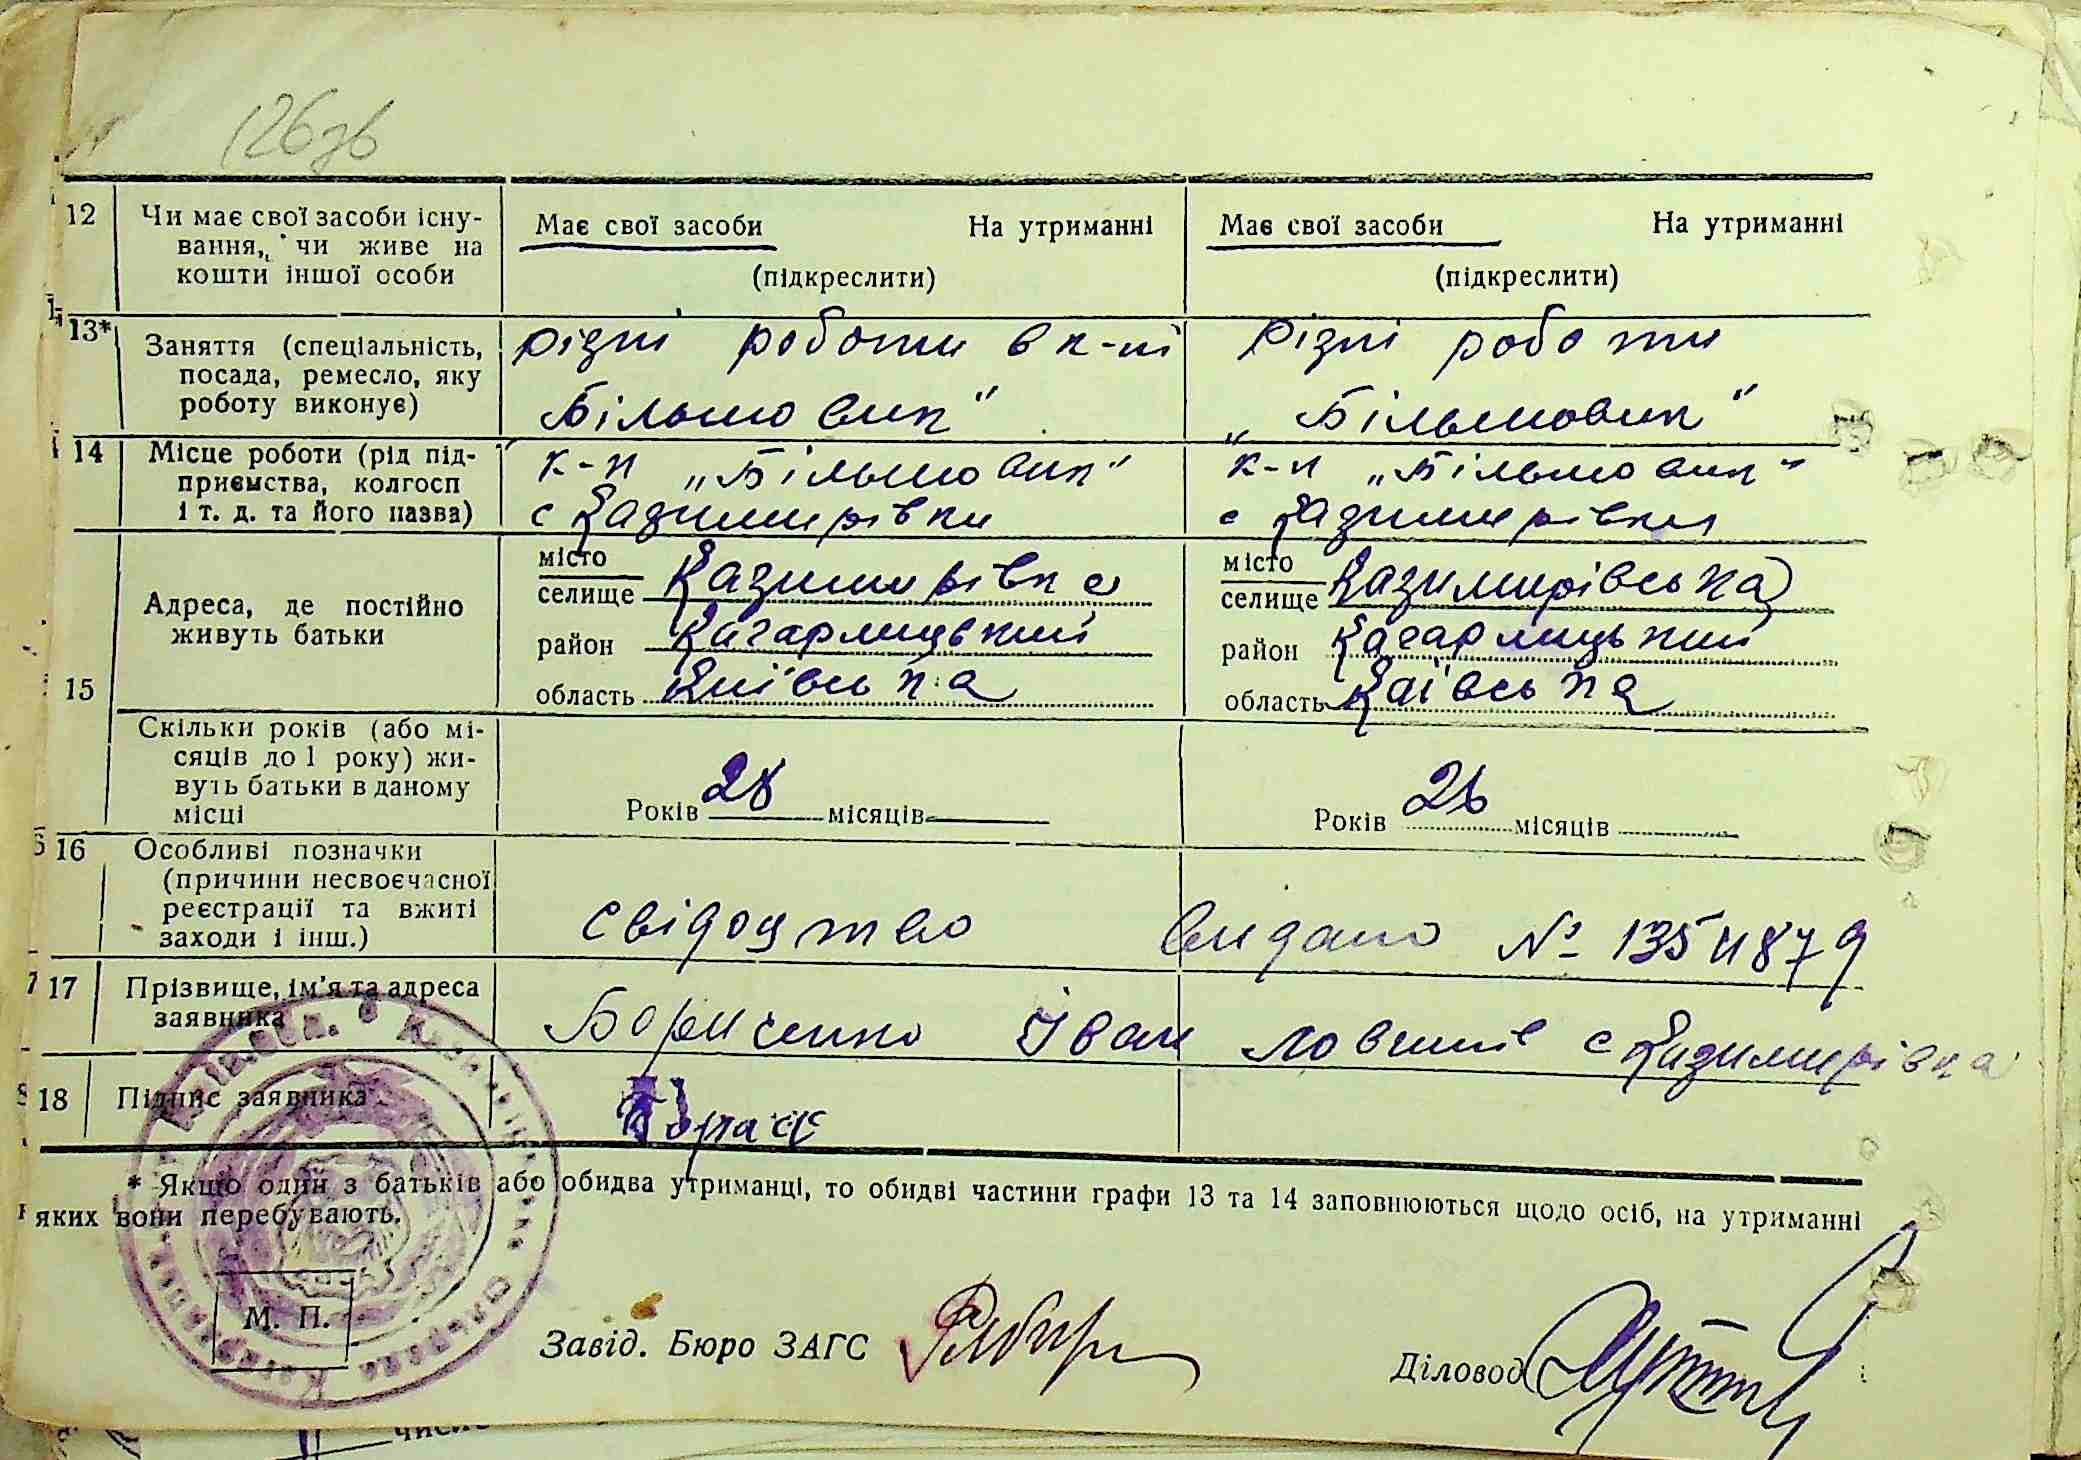 126зв
12 Чи має свої засоби існу-
вання, чи живе на
кошти іншої особи
Має свої засоби На утриманні
(підкреслити)
Має свої засоби На утриманні
(підкреслити)
13* Заняття (спеціальність,
посада, ремесло, яку
роботу виконує)
різні роботи в к-пі
Більшовик"
Різні роботи
„Більшовик"
14 Місце роботи (рід під-
приємства, колгосп
і т. д. та його назва)
к-п „Більшовик"
с Казимирівки
к-п „Більшовик"
с Казимирівки
15 Адреса, де постійно
живуть батьки
місто
селище Казимирівка
район Кагарлицький
область Київська
місто
селище Казимирівська
район Кагарлицький
область Київська
Скільки років (або мі-
сяців до 1 року) жи-
вуть батьки в даному
місці
Років 28 місяців
Років 26 місяців
16 Особливі позначки
(причини несвоєчасної
реєстрації та вжиті
заходи і інш.)
свідоцтво видано № 1354879
17 Прізвище, ім'я та адреса
заявника
Борисенко Іван с Казимирівка
18 Підпис заявника
* Якщо один з батьків або обидва утриманці, то обидві частини графи 13 та 14 заповнюються щодо осіб, на утриманні
яких вони перебувають.
М. П.
Завід. Бюро ЗАГС
Діловод